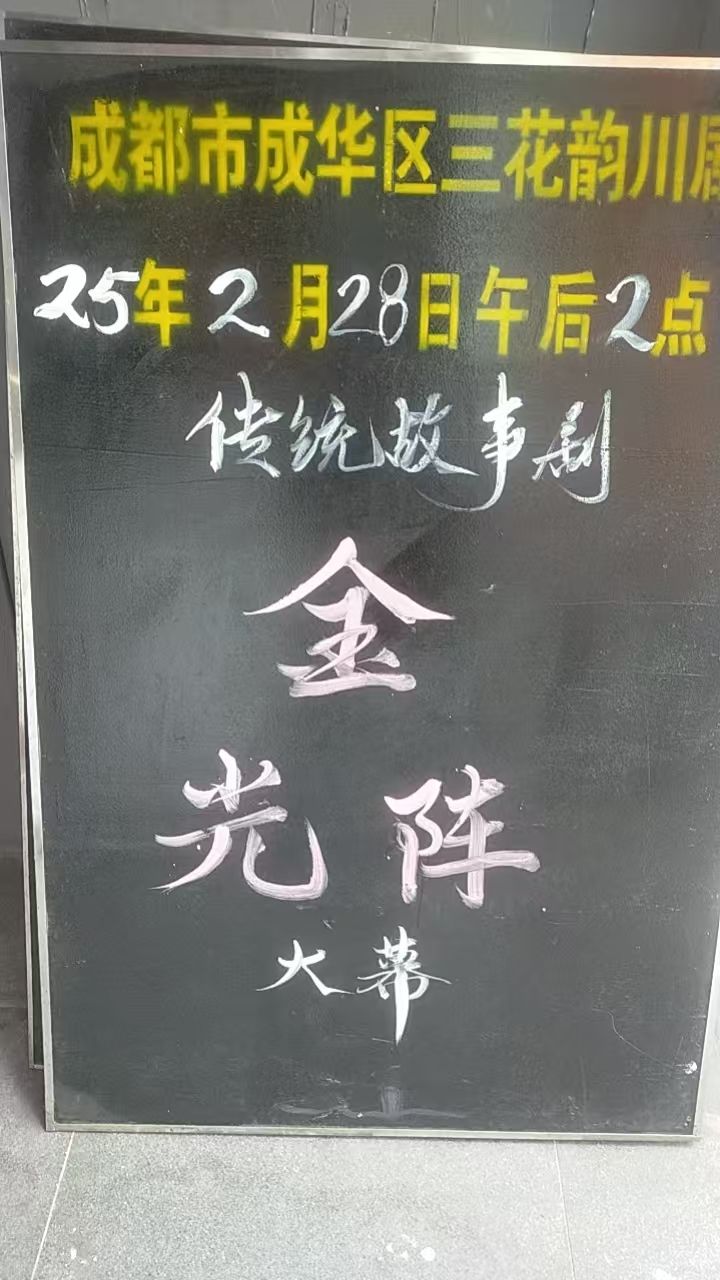 成都市成华区三花韵川居
25年2月28日午后2点
传统故事剧
金
光阵
大幕